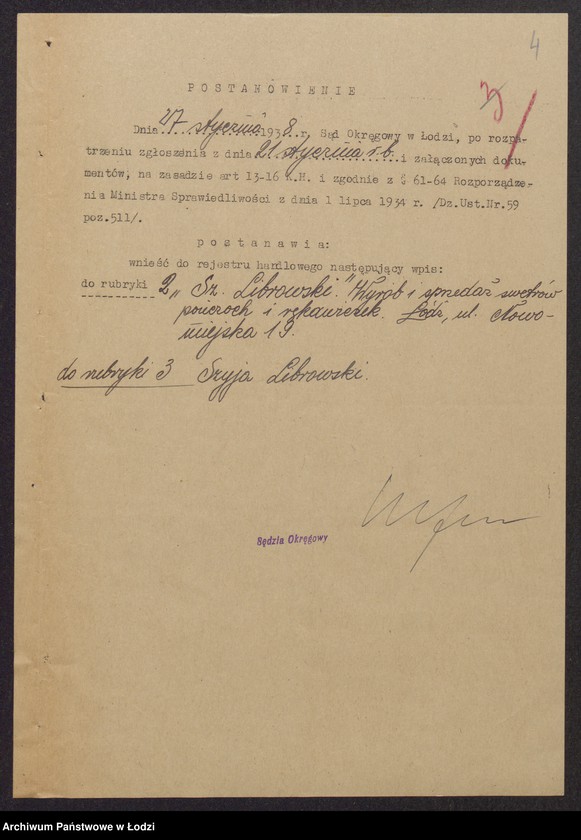 4
3
POSTANOWIENIE
Dnia 27 stycznia 1938.r, Sąd Okręgowy w Łodzi, po rozpa-
trzeniu zgłoszenia z dnia 21 stycznia r.b. i załączonych doku-
mentów, na zasadzie art 13-16 K.H. i zgodnie z §§ 61-64 Rozporządze-
nia Ministra Sprawiedliwości z dnia 1 lipca 1934 r. /Dz.Ust.Nr.59
poz.511/.
postanawia:
wnieść do rejestru handlowego następujący wpis:
do rubryki 2 „Sz. Librowski." Wyrób i sprzedaż swetrów
pończoch i rękawiczek. Łódź, ul. Nowo-
miejska 19.
do rubryki 3 Szyja Librowski.
Sędzia Okręgowy
Archiwum Państwowe w Łodzi